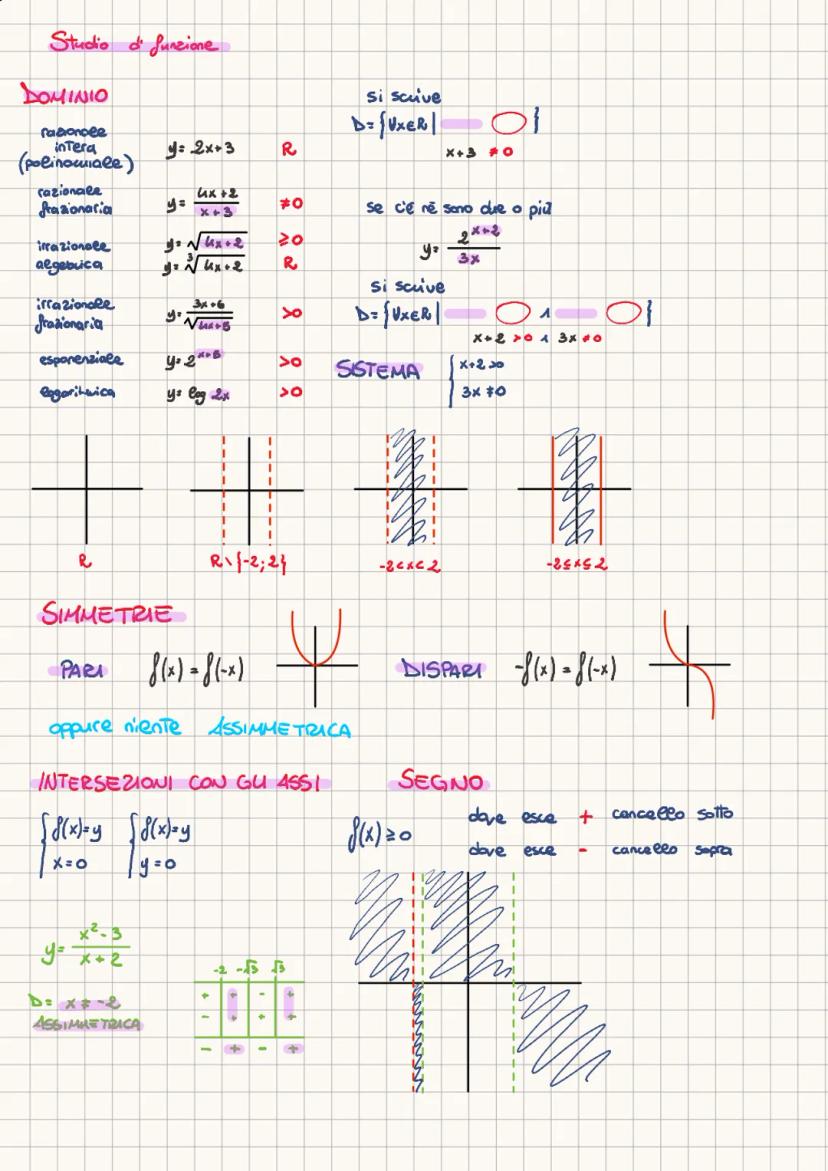 Studio d'funzione
DOMINIO
razionale
intera
(polinomiale)
y= 2x+3 R
razionale
frazionaria
y= (4x+2)/(x+3) ≠0
irrazionale
algebrica
y= √(4x+2) ≥0
y= ∛(4x+2) R
irrazionale
frazionaria
y= (3x+6)/√(4x+5) >0
esponenziale y= 2^(x+5) >0
logaritmica y= log 2x >0
si scrive
D= {∀x∈R| }
x+3 ≠0
se c'è nè sono due o più
y= 2^(x+2)/(3x)
si scrive
D= {∀x∈R| ∧ }
x+2 >0 ∧ 3x ≠0
SISTEMA
{ x+2>0
3x ≠0
R
R\{-2;2}
-2<x<2
-2≤x≤2
SIMMETRIE
PARI f(x) = f(-x)
DISPARI -f(x) = f(-x)
oppure niente ASSIMMETRICA
INTERSEZIONI CON GLI ASSI
{ f(x)=y
x=0
{ f(x)=y
y=0
SEGNO
f(x) ≥0
dove esce + cancello sotto
dove esce - cancello sopra
y= (x²-3)/(x+2)
D= x ≠ -2
ASSIMMETRICA
-2 -√3 √3
+ + - +
- + + +
- + - +